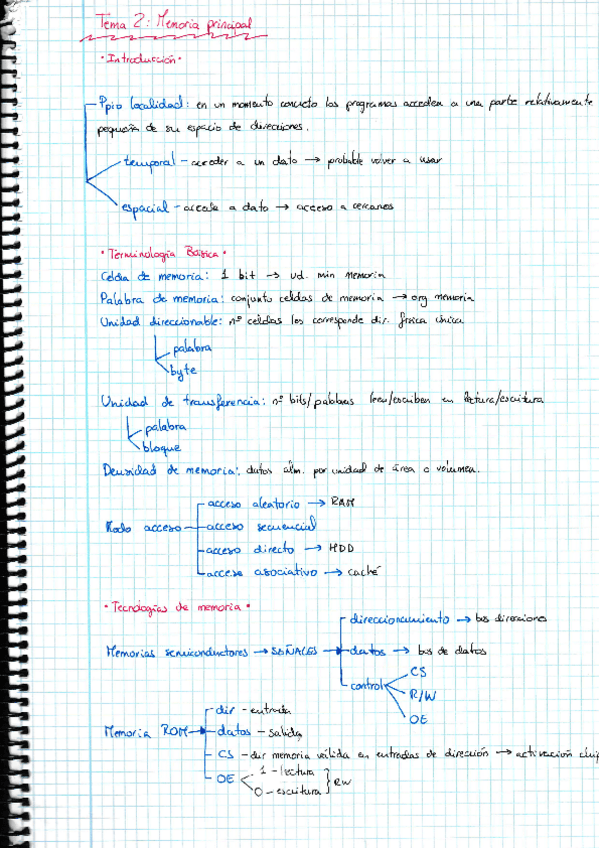 Tema 2: Memoria principal
• Introducción •
Ppio localidad: en un momento concreto los programas acceden a una parte relativamente
pequeña de su espacio de direcciones.
temporal - acceder a un dato → probable volver a usar
espacial - accede a dato → acceso a cercanos
• Terminología Básica •
Celda de memoria: 1 bit → ud. min memoria
Palabra de memoria: conjunto celdas de memoria → org memoria
Unidad direccionable: nº celdas les corresponde dir. física única
palabra
byte
Unidad de transferencia: nº bits/palabras leen/escriben en lectura/escritura
palabra
bloque
Densidad de memoria: datos alm. por unidad de área o volumen.
acceso aleatorio → RAM
Modo acceso acceso secuencial
acceso directo → HDD
acceso asociativo → caché
• Tecnologías de memoria •
direccionamiento → bus direcciones
Memorias semiconductores → SEÑALES → datos → bus de datos
control CS
R/W
OE
dir - entrada
Memoria ROM → datos - salida
CS - dir memoria válida en entradas de dirección → activación chip
OE 1 - lectura
0 - escritura } RW